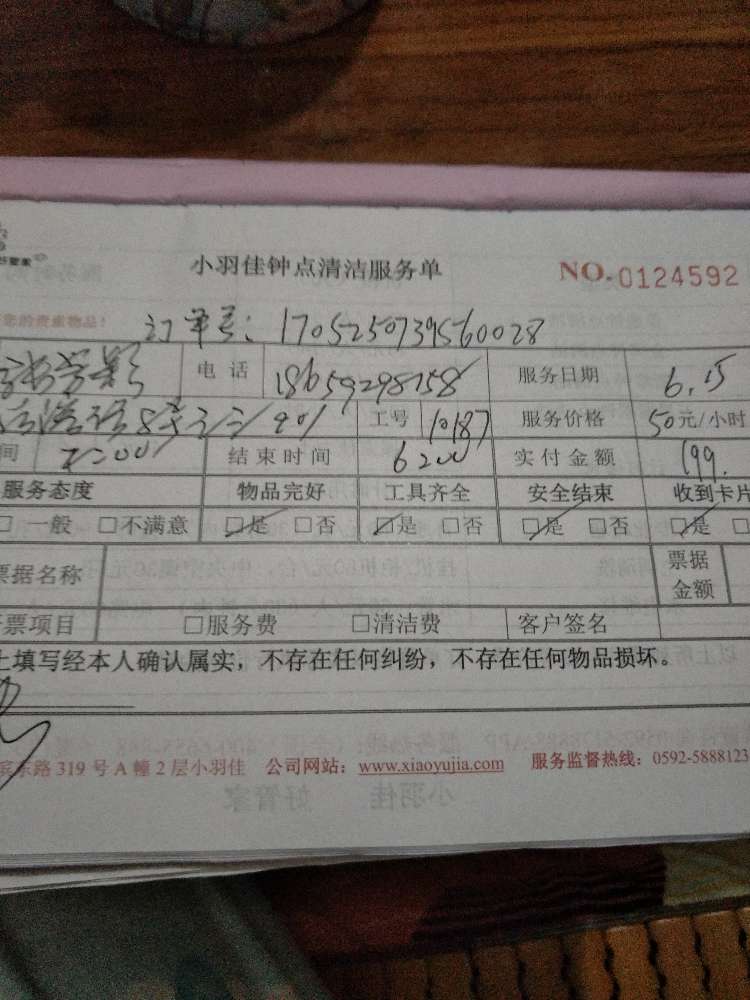 好管家
小羽佳钟点清洁服务单 NO.0124592
您的贵重物品!
订单号: 1705250739560028
电话 18659298758 服务日期 6.15
工号 10187 服务价格 50元/小时
间 结束时间 实付金额 199.
服务态度 物品完好 工具齐全 安全结束 收到卡片
□一般 □不满意 □是 □否 □是 □否 □是 □否 □是
票据名称 票据金额
票项目 □服务费 □清洁费 客户签名
上填写经本人确认属实，不存在任何纠纷，不存在任何物品损坏。
滨东路319号A幢2层小羽佳 公司网站：www.xiaoyujia.com 服务监督热线：0592-5888123